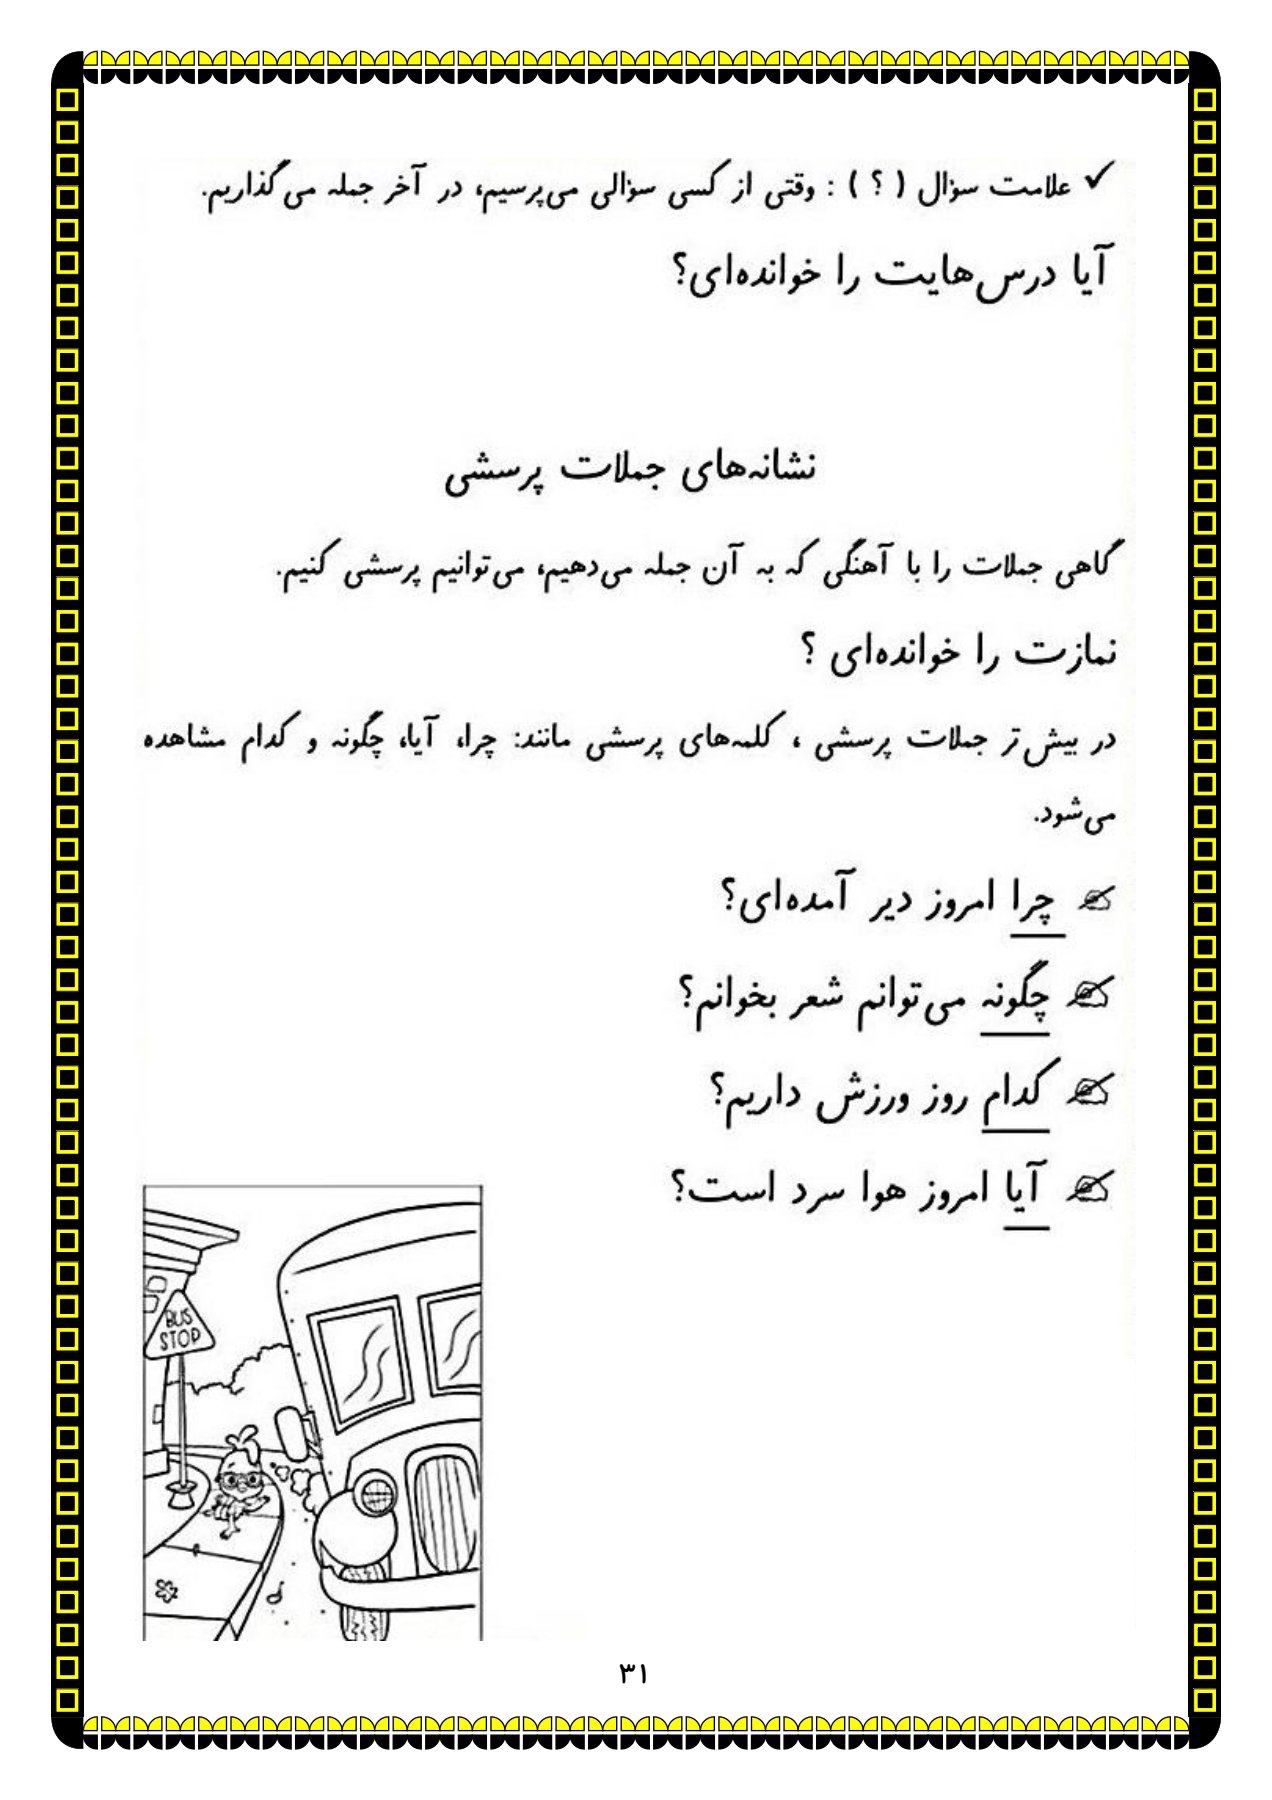 ✓ علامت سؤال ( ؟ ) : وقتی از کسی سؤالی می‌پرسیم، در آخر جمله می‌گذاریم.
آیا درس‌هایت را خوانده‌ای؟
نشانه‌های جملات پرسشی
گاهی جملات را با آهنگی که به آن جمله می‌دهیم، می‌توانیم پرسشی کنیم.
نمازت را خوانده‌ای ؟
در بیش‌تر جملات پرسشی ، کلمه‌های پرسشی مانند: چرا، آیا، چگونه و کدام مشاهده
می‌شود.
چرا امروز دیر آمده‌ای؟
چگونه می‌توانم شعر بخوانم؟
کدام روز ورزش داریم؟
آیا امروز هوا سرد است؟
BUS
STOP
۳۱